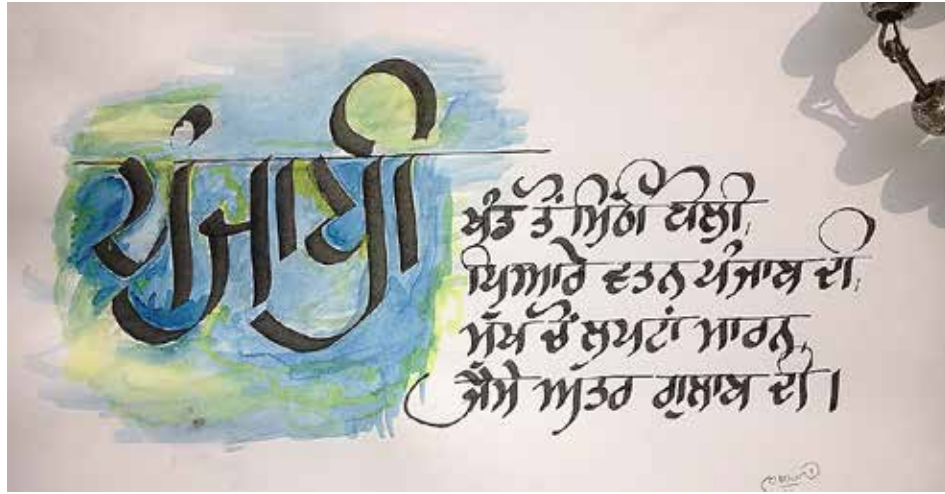 ਪੰਜਾਬੀ
ਖੰਡ ਤੋਂ ਮਿੱਠੀ ਬੋਲੀ,
ਪਿਆਰੇ ਵਤਨ ਪੰਜਾਬ ਦੀ,
ਮੁੱਖ 'ਚੋਂ ਲਪਟਾਂ ਮਾਰਨ,
ਜੈਸੇ ਅਤਰ ਗੁਲਾਬ ਦੀ।